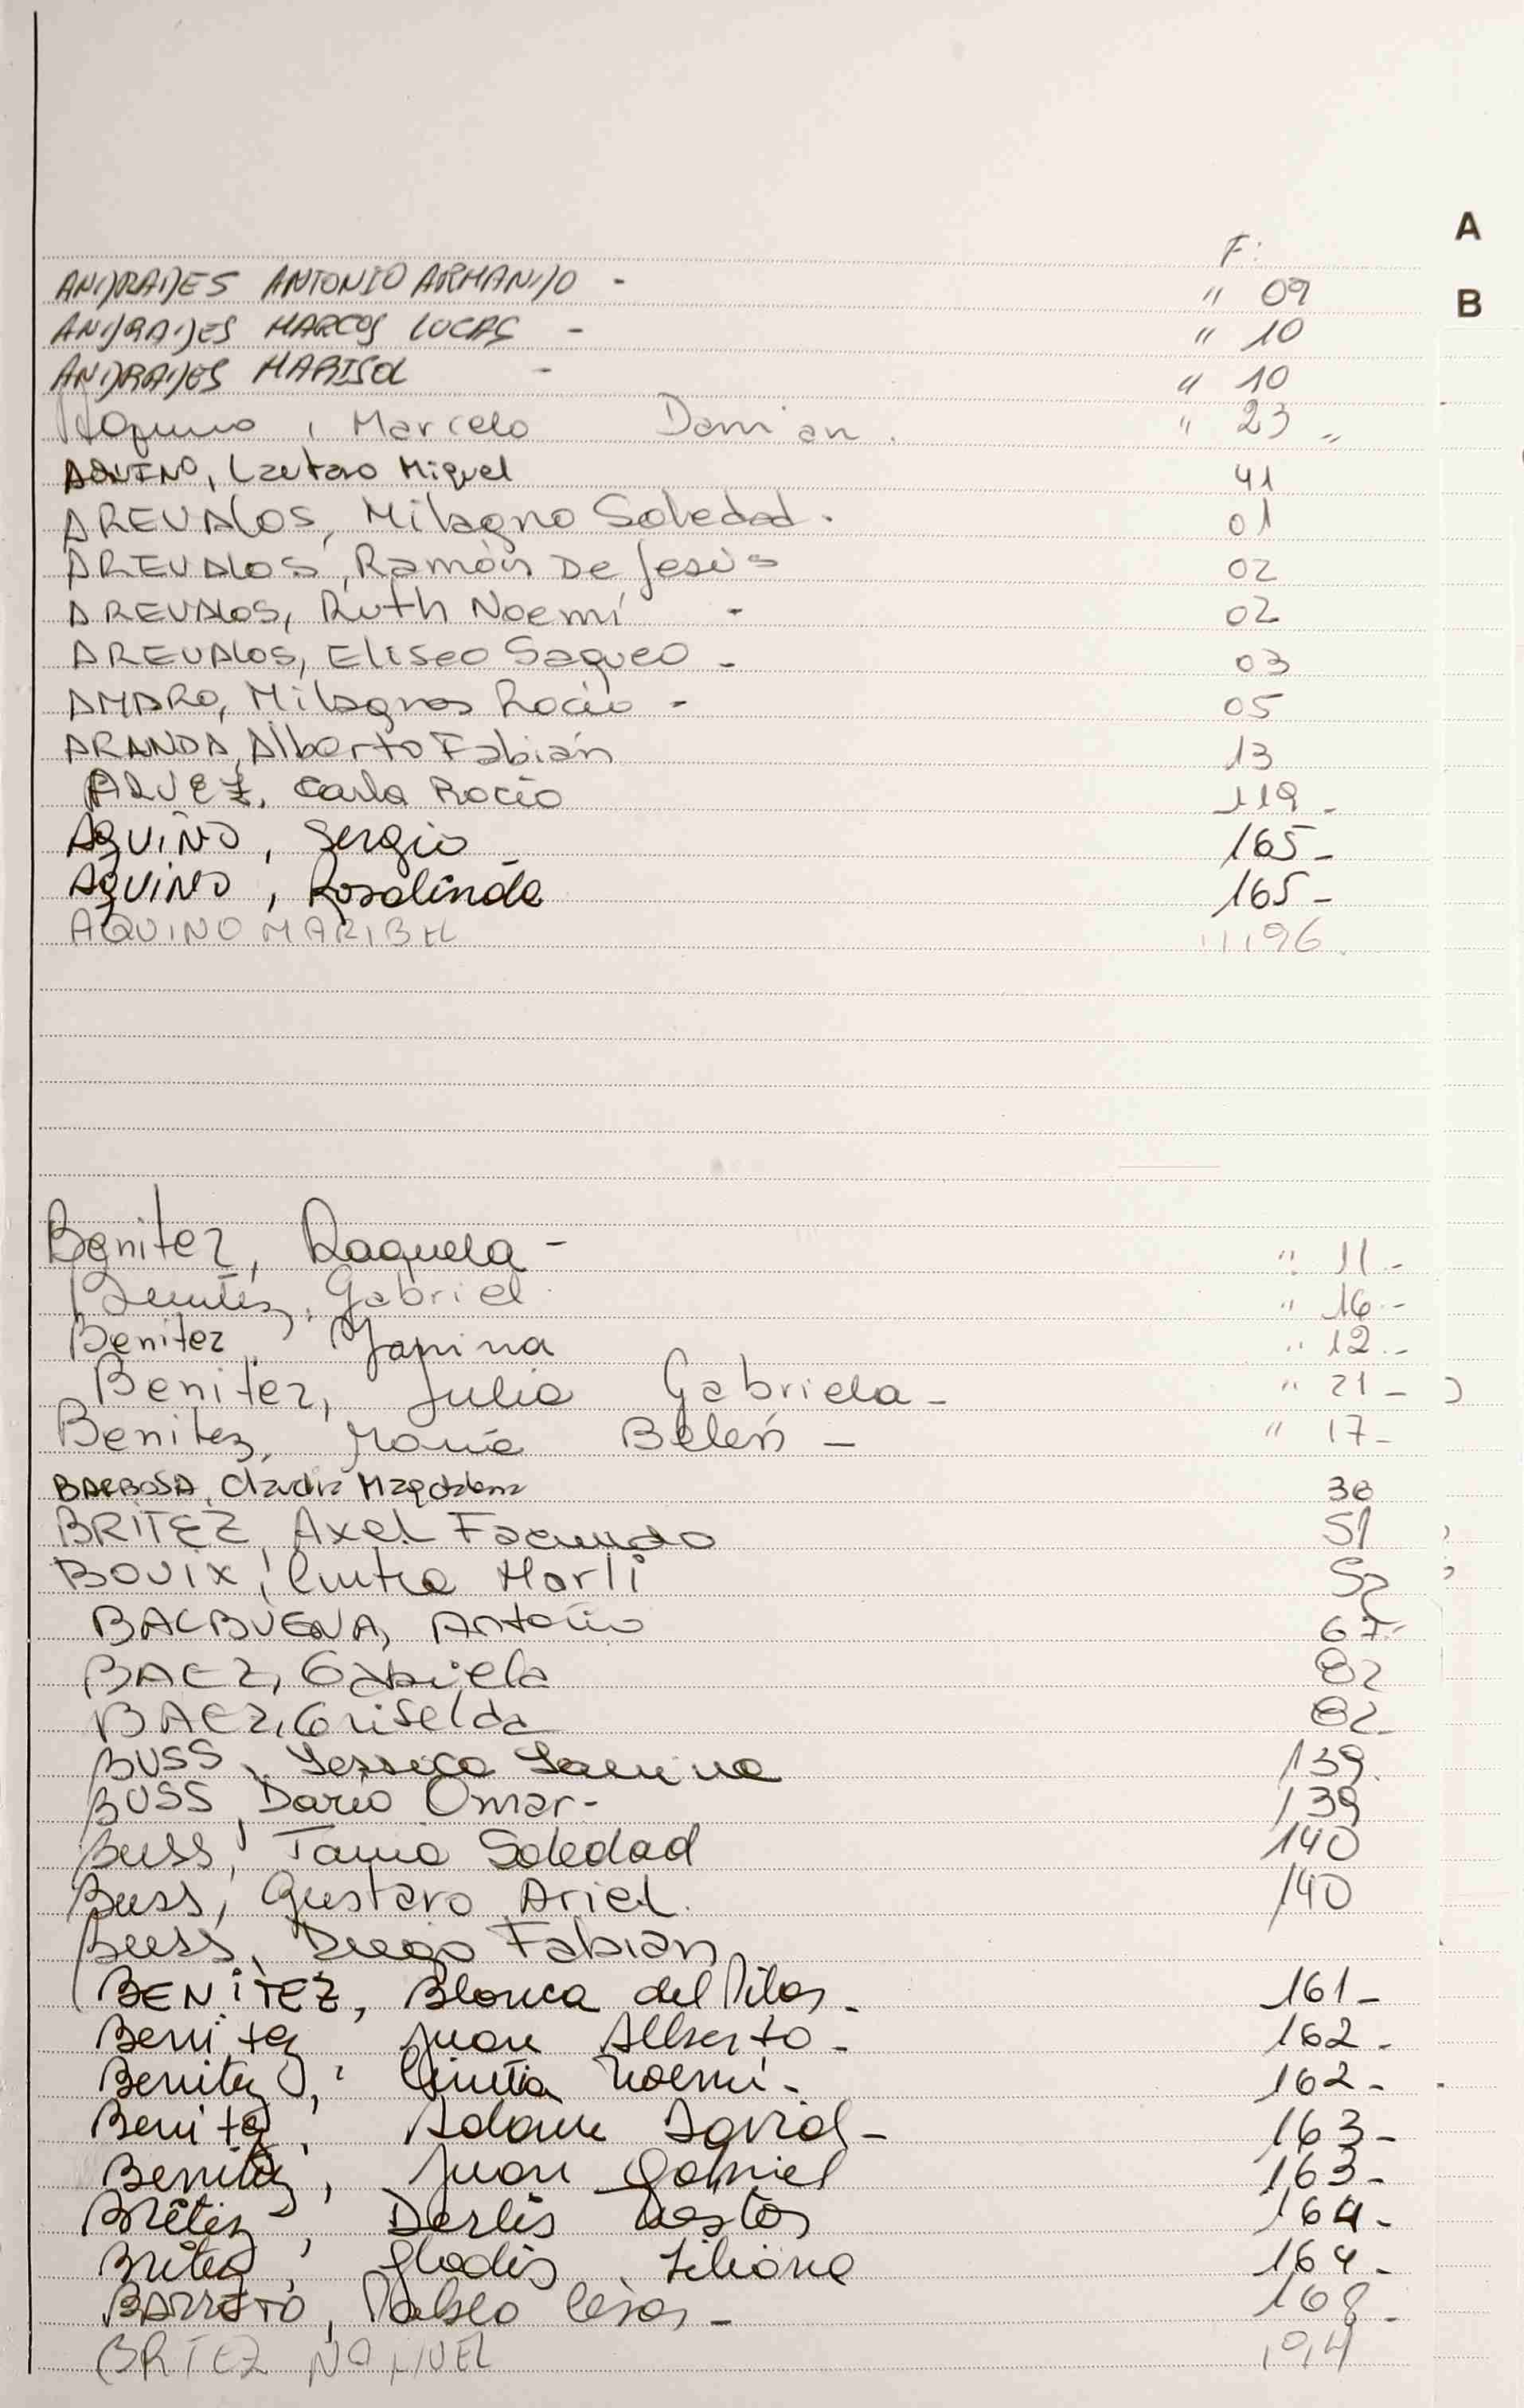 F:
A
ANDRADES ANTONIO ARMANDO - " 09
B
ANDRADES MARCOS LUCAS - " 10
ANDRADES MARISOL - " 10
Aquino, Marcelo Damian. " 23 "
AQUINO, Lautaro Miguel 41
AREVALOS, Milagno Soledad. 01
AREVALOS, Ramón De Jesús 02
AREVALOS, Ruth Noemí - 02
AREVALOS, Eliseo Saqueo - 03
AMARO, Milagros Rocío - 05
ARANDA, Alberto Fabián 13
ALVEZ, Carla Rocío 119 -
AQUINO, Sergio 165 -
AQUINO, Rosalinda 165 -
AQUINO MARIBEL 196.
Benitez, Raquela - " 11 -
Benitez, Gabriel. " 16 -
Benitez, Yanina " 12 -
Benitez, Julia Gabriela - " 21 -
Benitez, María Belén - " 17 -
BARBOSA, Claudia Magdalena 38
BRITEZ, Axel Facundo 51
BOVIX, Cintia Marli 52
BALBUENA, Antonio 67 -
BAEZ, Gabriela 82
BAEZ, Griselda 82 -
BUSS, Yessica Yanina 139.
BUSS, Dario Omar - 139
Buss, Tania Soledad 140
Buss, Gustavo Ariel. 140
Buss, Diego Fabian.
BENÍTEZ, Blanca del Pilar - 161 -
Benitez, Juan Alberto - 162 -
Benitez, Cintia Noemí - 162 -
Benitez, Adam David - 163 -
Benitez, Juan Gabriel 163 -
Britez, Derlis Nestor 164 -
Britez, Gladis Liliana 164 -
BARRETO, Pablo César - 168 -
BRTEZ NAHUEL 194